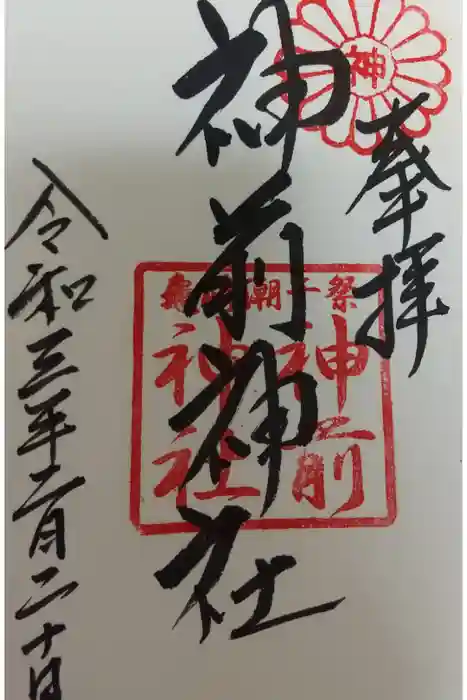 神
奉拝
神前神社
潮干祭
神前
神社
令和三年二月二十日